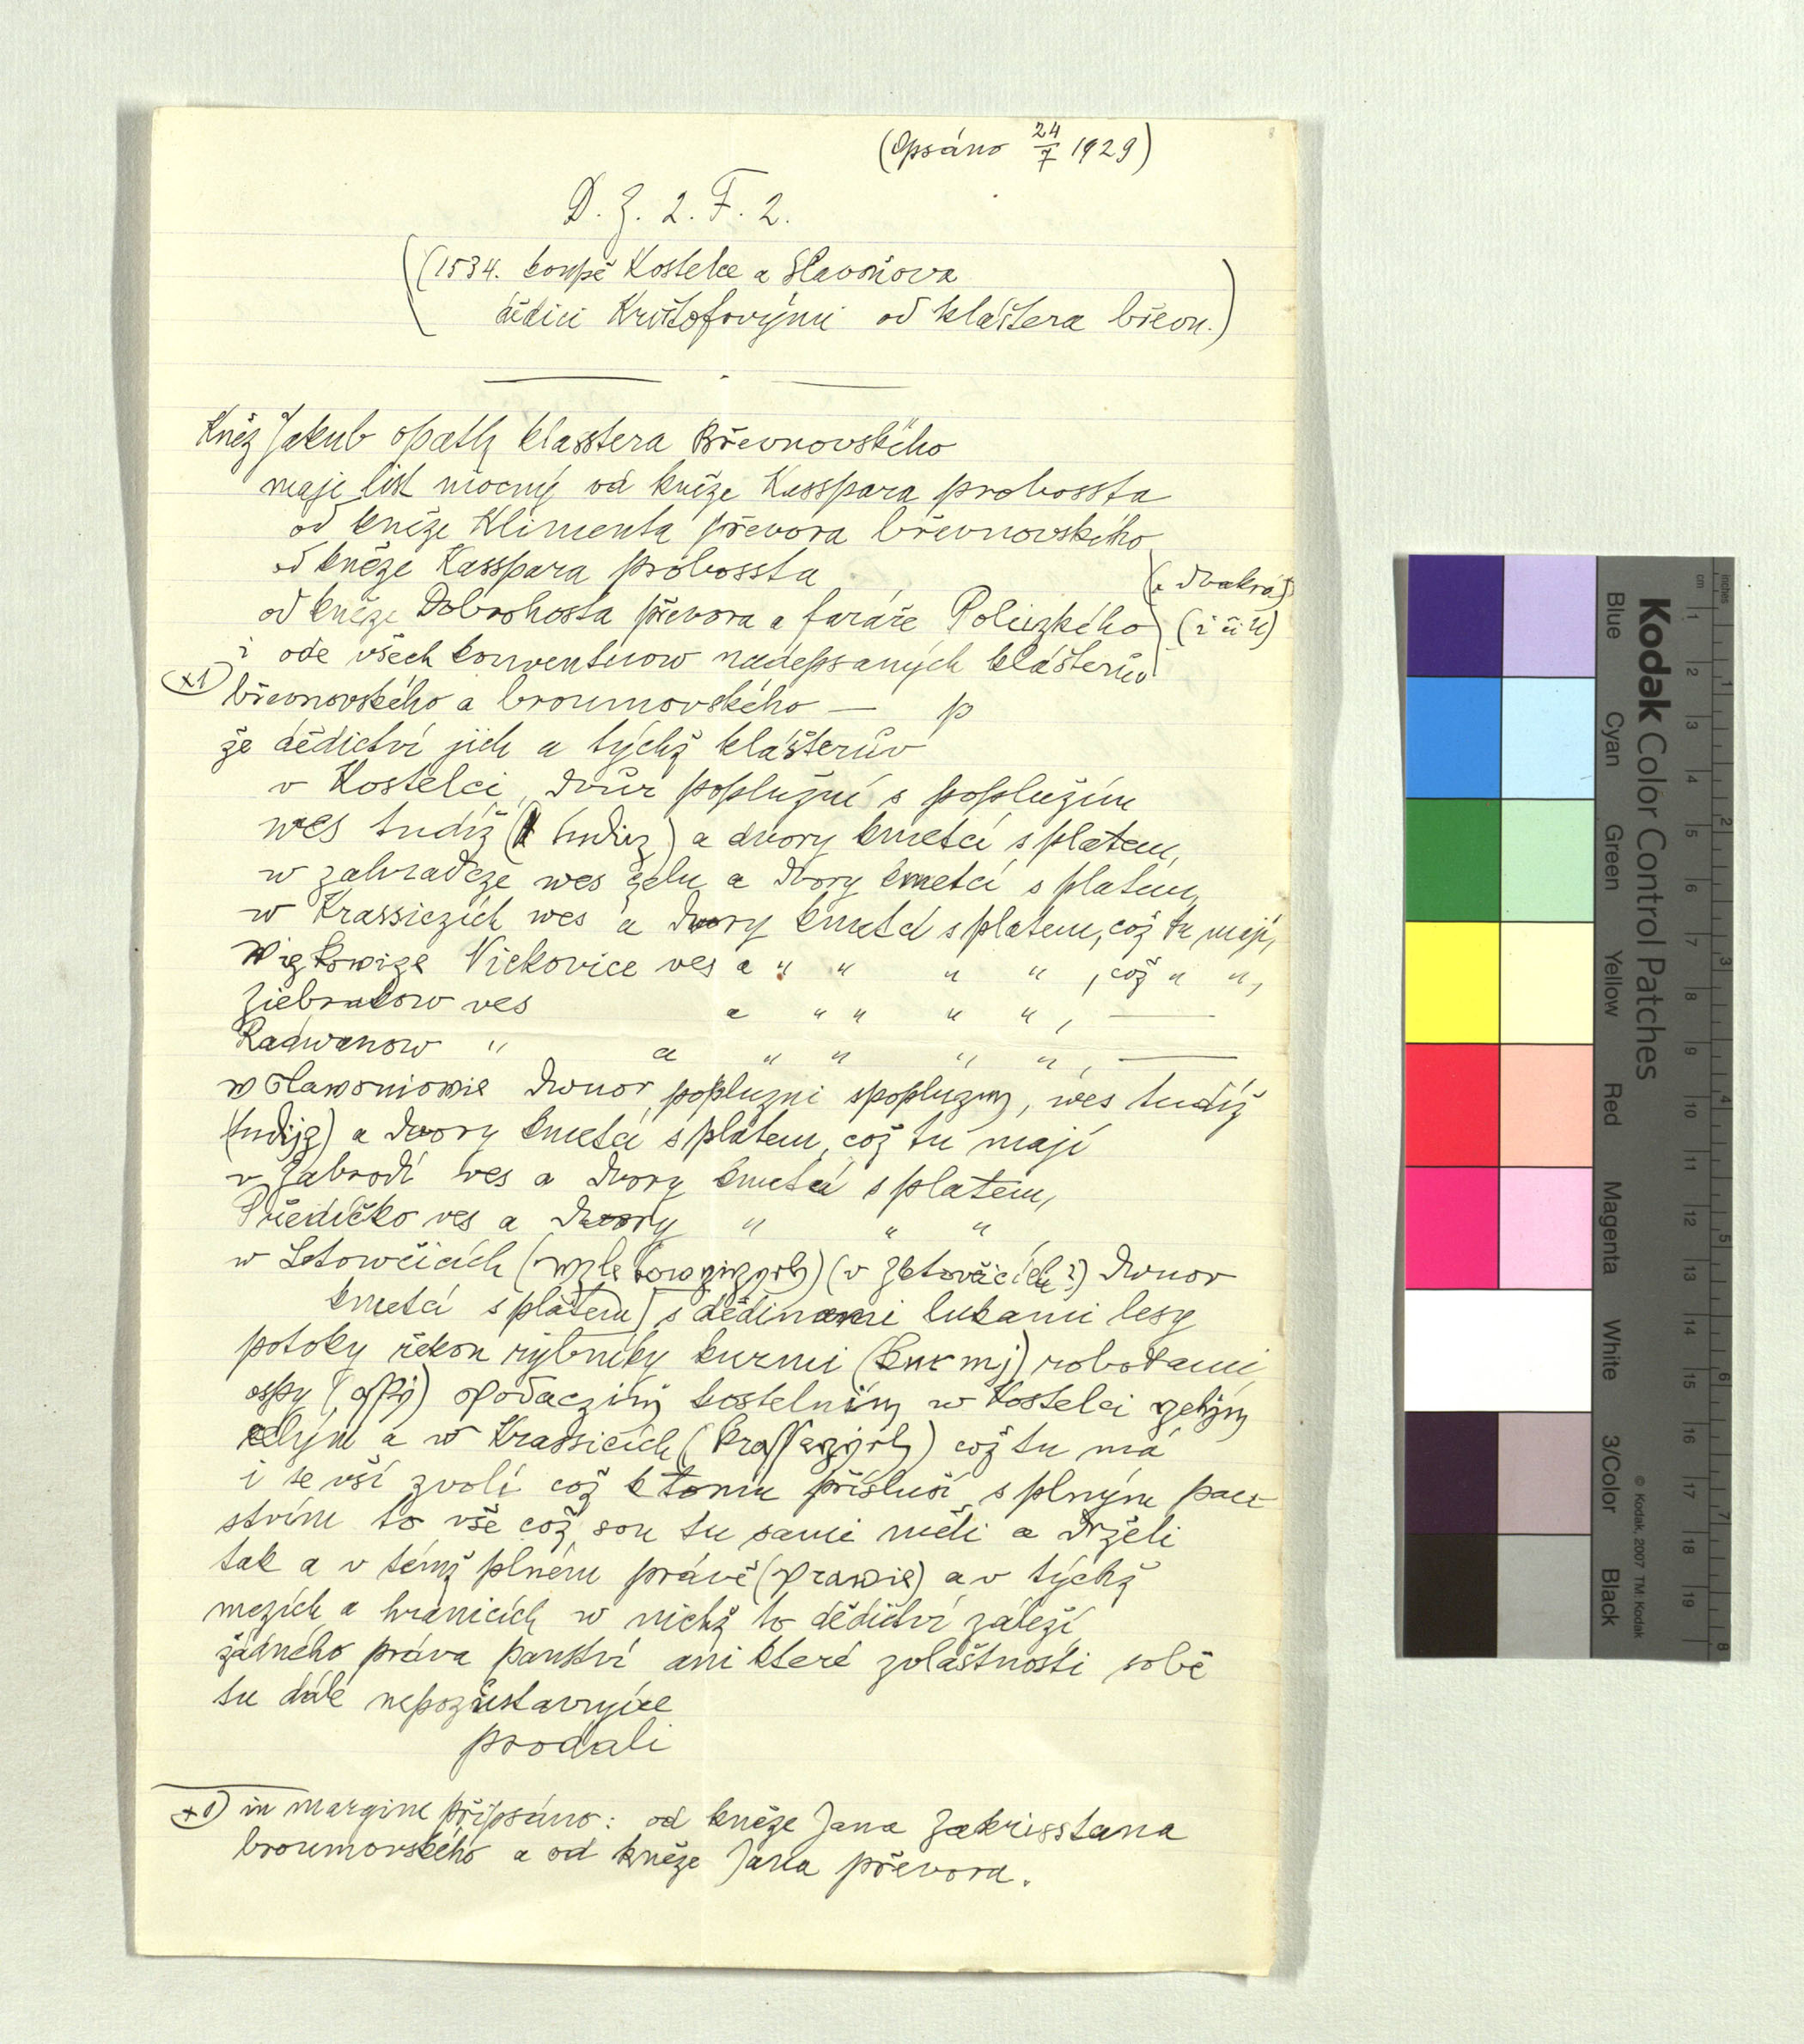 (Opsáno 24/7 1929)
D. Z. 2. F. 2.
(1534. koupě Kostelce a Slavoňova
dědici Krištofovými od kláštera břevn.)
Kněz Jakub opath klasstera Břevnovského
maje list mocný od kněze Kasspara probossta
od kněze Klimenta převora břevnovského
od kněze Kasspara probossta
(: dvakrát
od kněze Dobrohosta převora a faráře Policzkého
i ode všech konventuow nadepsaných klášterův
x1) břevnovského a broumovského — p
že dědictví jich a týchž klášterův
v Kostelci, dvůr poplužní s poplužím
wes tudíž (tudiz) a dvory kmetcí s platem,
w zahradcze wes celu a dvory kmetcí s platem,
w Krassiczích wes a dvory kmetcí s platem, což tu mají,
Wiezkowize Vickovice ves a " " " " , což " ",
Ziebrakow ves a " " " " , —
Radwanow " a " " " " , —
w Slawoniowie dwuor popluzni spopluzym, wes tudíž
(tudijz) a dvory kmetcí s platem, což tu mají
v Zabrodí ves a dvory kmetcí s platem,
Předičko ves a dvory " " " ,
w Letowčicích (v Zletovčicích?) dwuor
kmetcí s platem s dědinami lukami lesy
potoky řekou rybníky kurmi (kurmj) robotami,
ospy (ospi) spodaczim kostelnim w Kostelci
celým a w Krassicích což tu má
i se vší zvolí což k tomu přísluší s plným pan-
stvím to vše což sou tu sami měli a drželi
tak a v témž plném právě (prawie) a v týchž
mezích a hranicích w nichž to dědictví záleží
žádného práva panství ani které zvláštnosti sobě
tu dále nepozůstavujíce
prodali
x1) in margine připsáno: od kněze Jana Zakrisstana
broumovského a od kněze Jana převora.
Kodak Color Control Patches
Blue Cyan Green Yellow Red Magenta White 3/Color Black
© Kodak, 2007 TM: Kodak
inches 1 2 3 4 5 6 7 8
cm 1 2 3 4 5 6 7 8 9 10 11 12 13 14 15 16 17 18 19